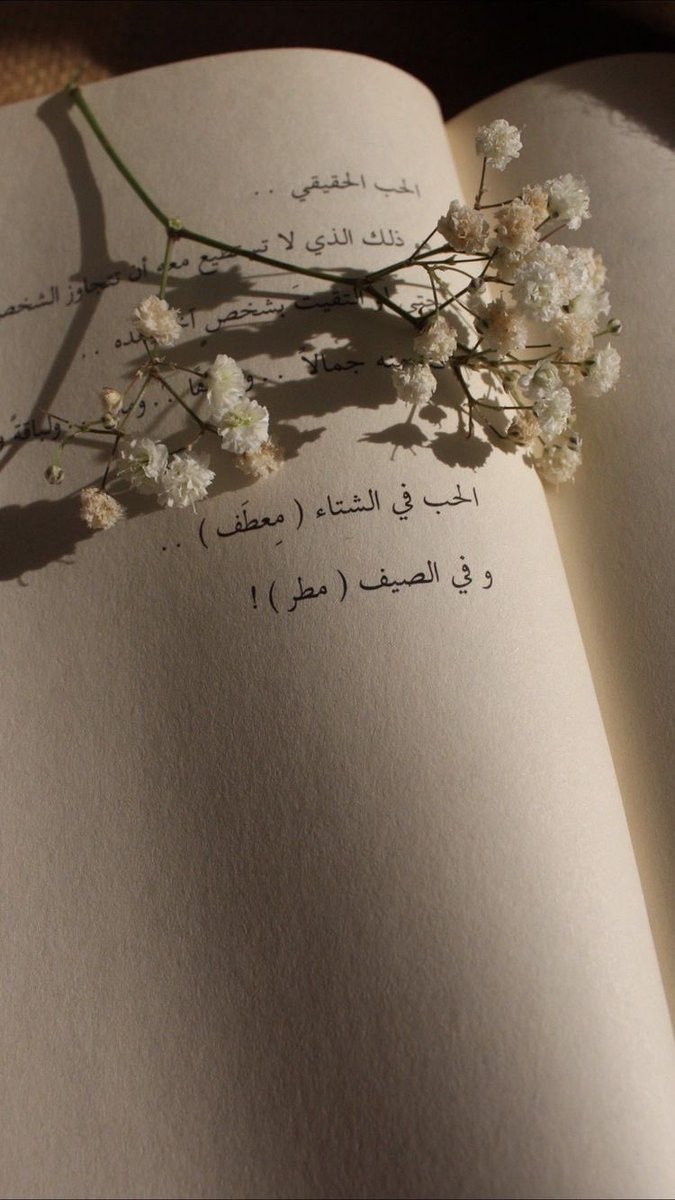 الحب الحقيقي ..
ذلك الذي لا تستطيع معه أن تتجاوز الشخص
حتى لو التقيتَ بشخصٍ
جمالاً .. .. ولباقةً
الحب في الشتاء ( مِعطَف ) ..
و في الصيف ( مطر ) !